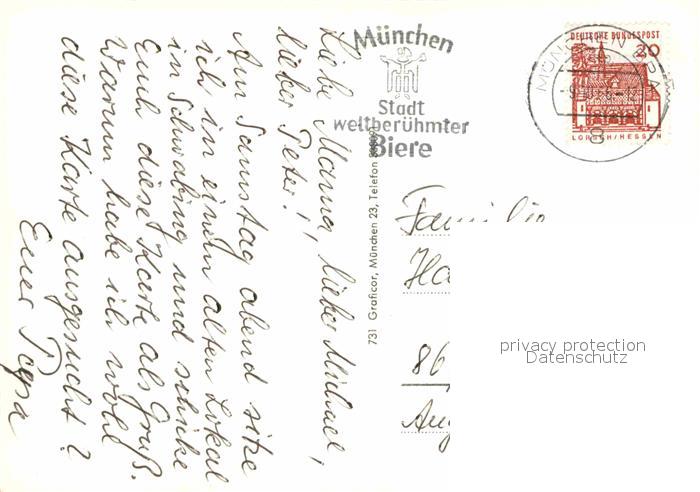 Liebe Mama, lieber Michael,
lieber Peter!
Am Samstag abend sitze
ich in einem alten Lokal
in Schwabing und schicke
Euch diese Karte als Gruß.
Warum habe ich wohl
diese Karte ausgesucht?
Euer Papa
München
Stadt
weltberühmter
Biere
731 Graficor, München 23, Telefon
MÜNCHEN
DEUTSCHE BUNDESPOST
20
LORSCH/HESSEN
Familie
Ha
86
Aug
privacy protection
Datenschutz